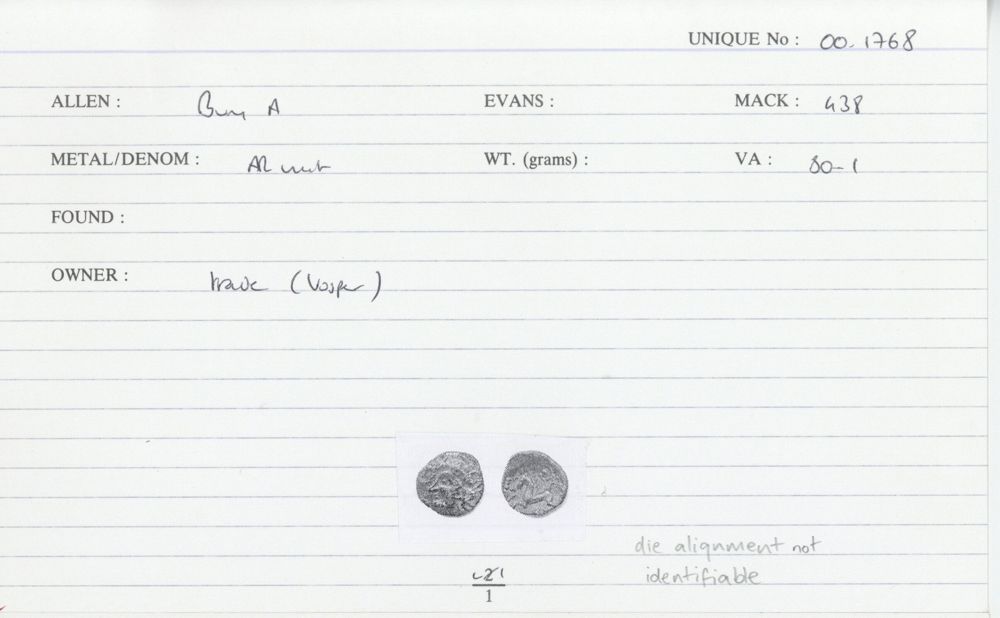 UNIQUE No : 00.1768
ALLEN : Bury A EVANS : MACK : 438
METAL/DENOM : AR unit WT. (grams) : VA : 80-1
FOUND :
OWNER : trade (Vosper)
die alignment not
identifiable
1